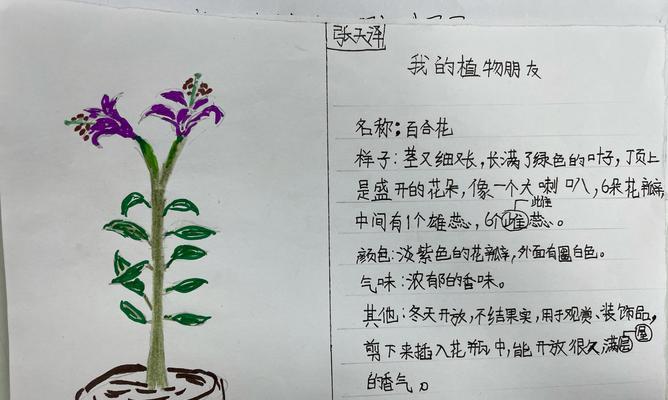 张天泽
我的植物朋友
名称：百合花
样子：茎又细又长，长满了绿色的叶子，顶上
是盛开的花朵，像一个大喇叭，6朵花瓣，
中间有1个雄蕊，6个雌蕊。
雌
颜色：淡紫色的花瓣，外面有圈白色。
气味：浓郁的香味。
其他：冬天开放，不结果实，用于观赏、装饰品，
剪下来插入花瓶中，能开放很久，满屋
屋
的香气。